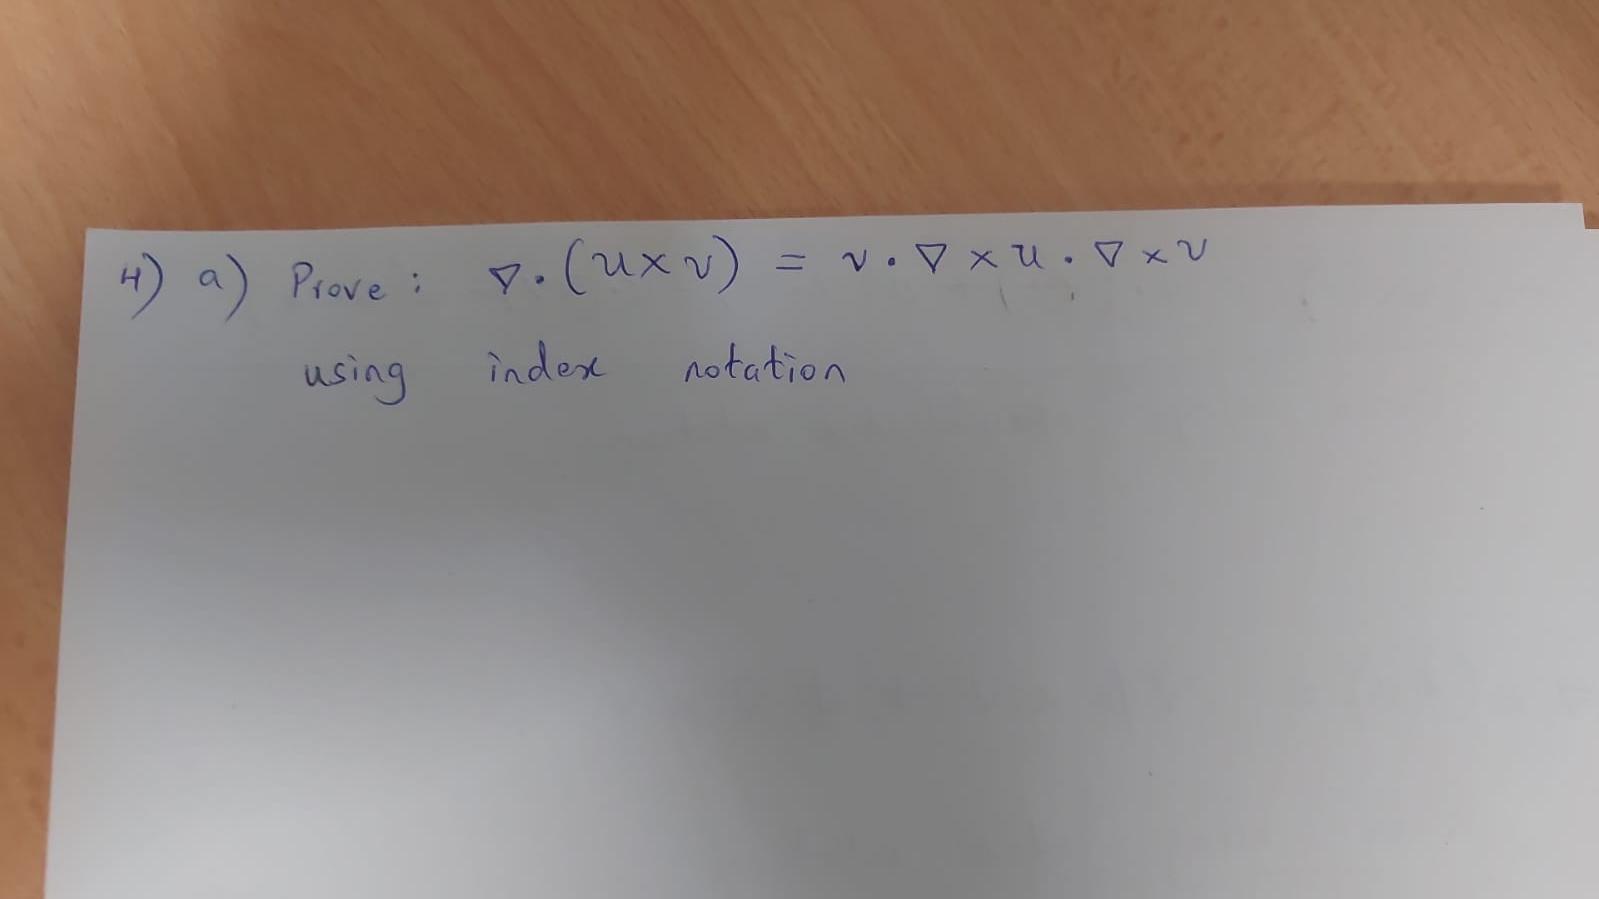 4) a) Prove : ∇ . (u × v) = v . ∇ × u . ∇ × v
using index notation